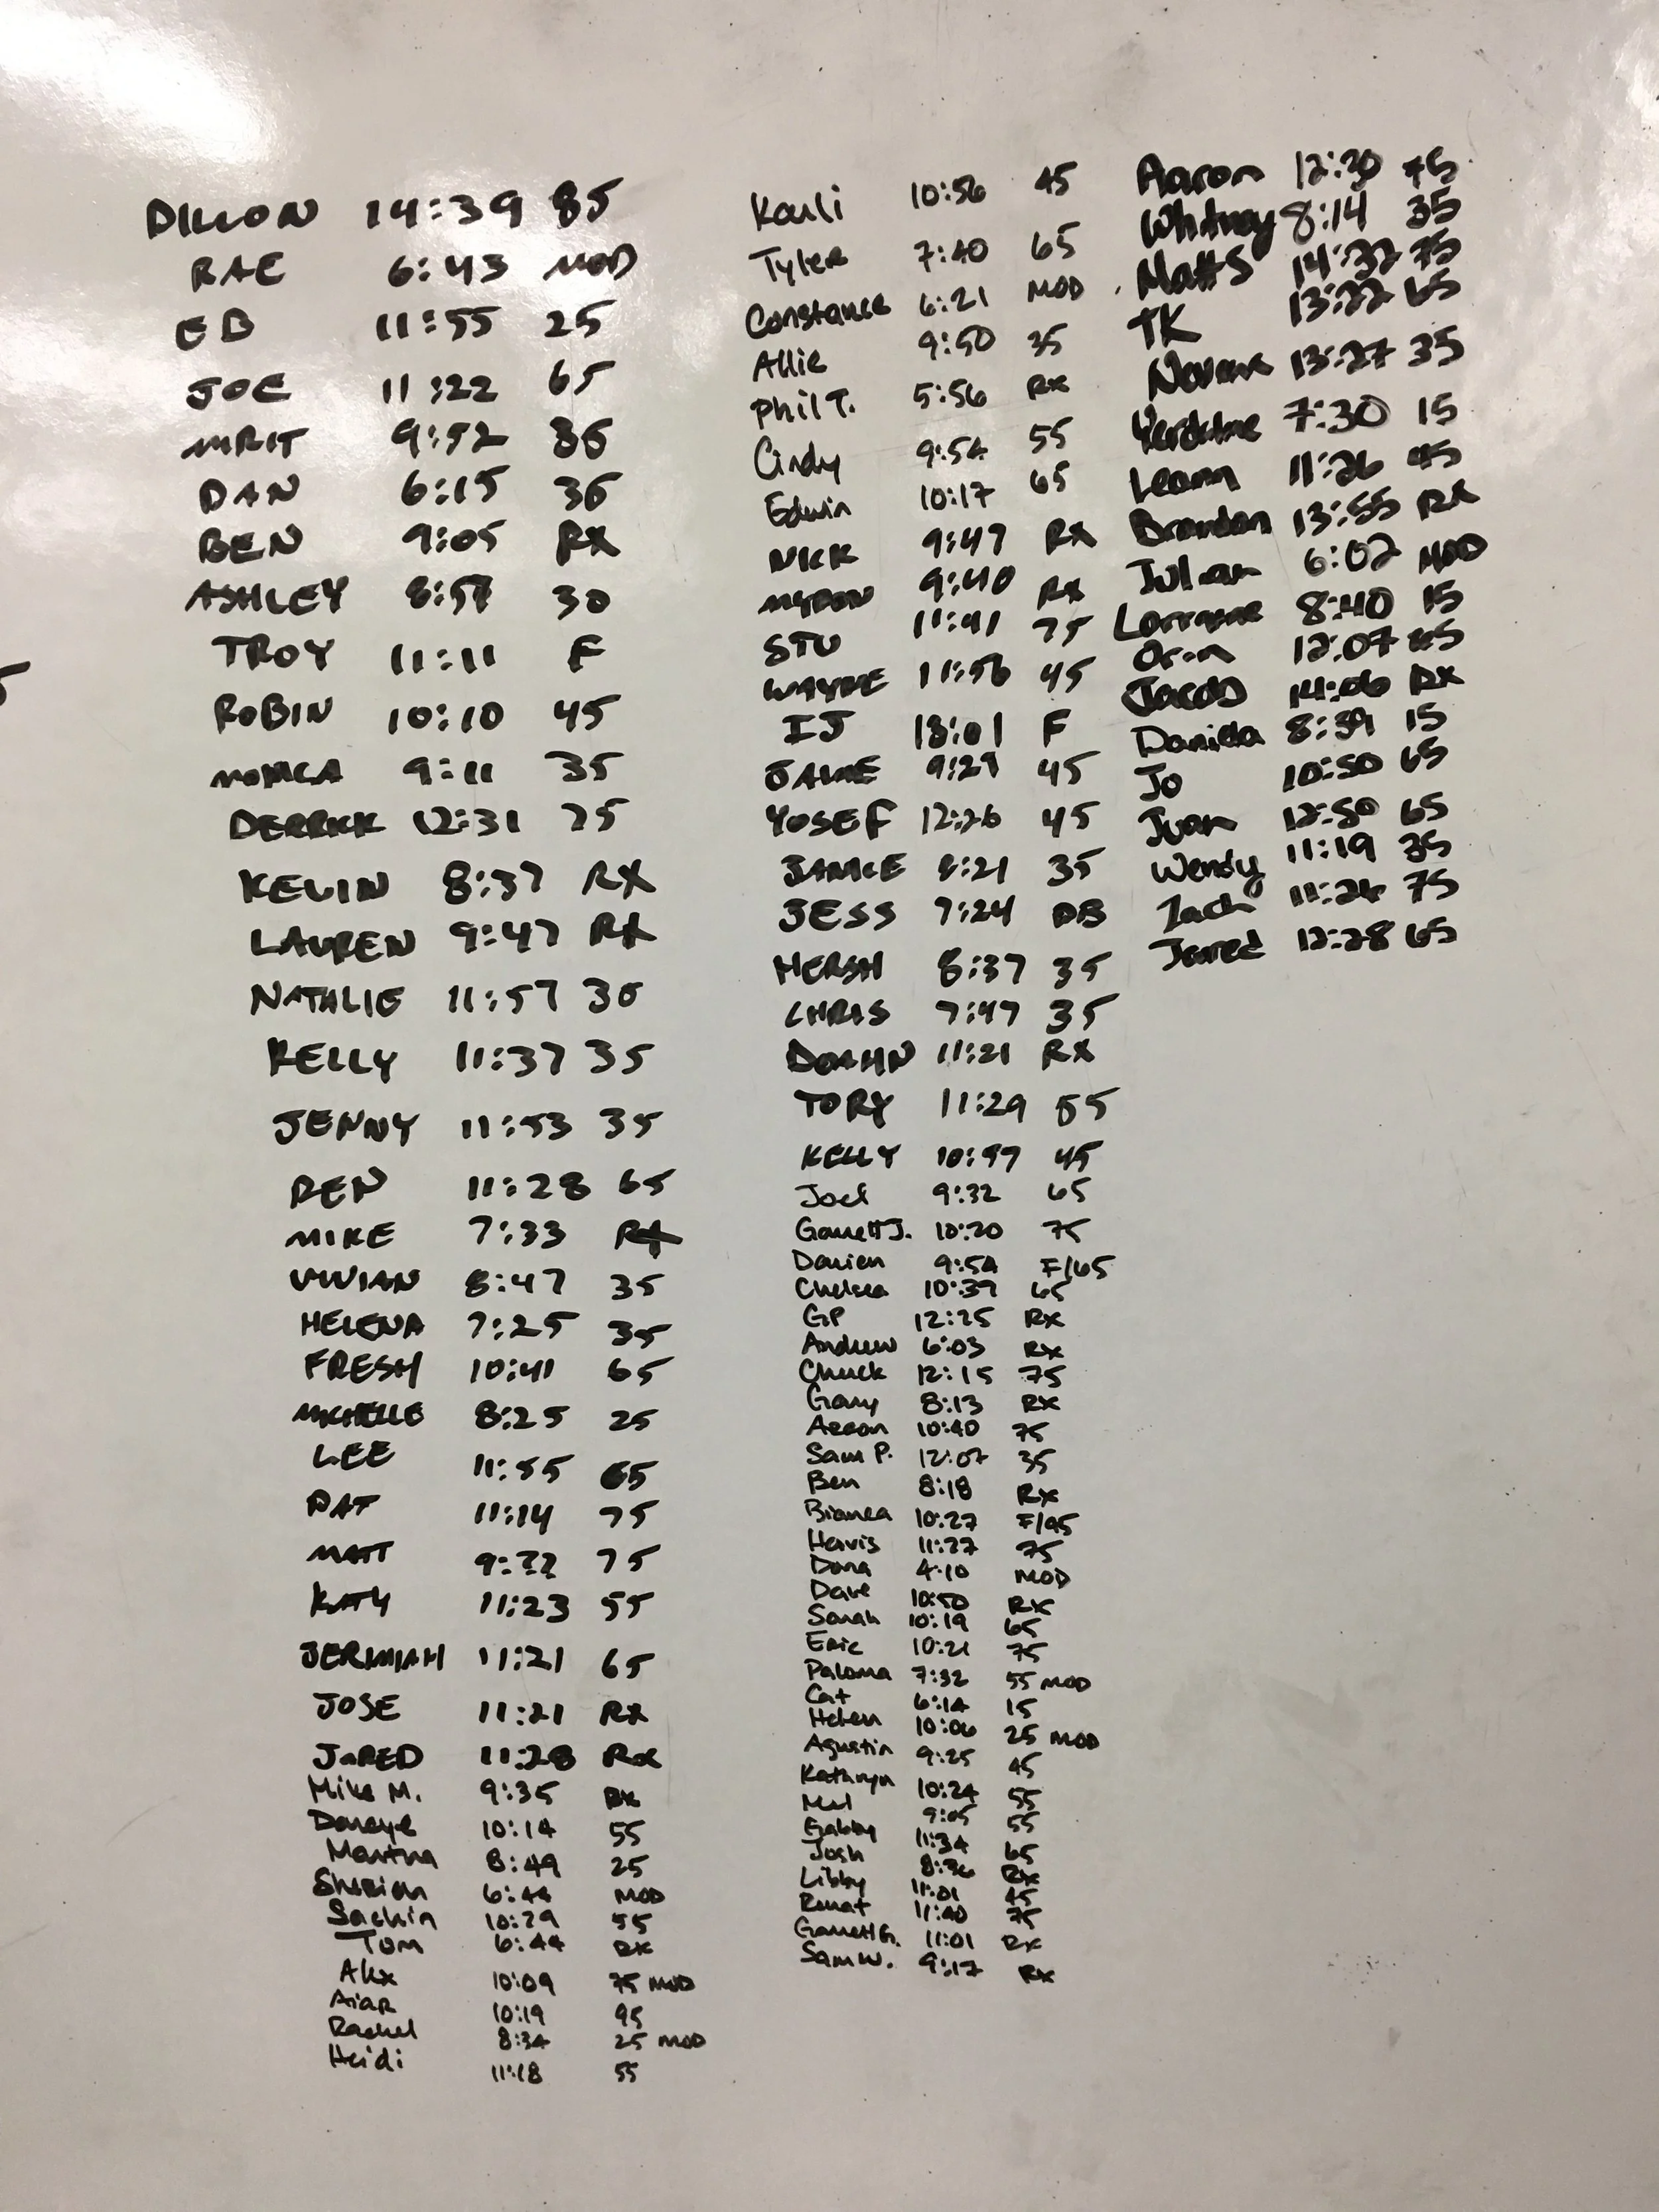 DILLON 14:39 85
RAE 6:43 MOD
EB 11:55 25
JOE 11:22 65
MRIT 9:52 36
DAN 6:15 36
BEN 9:05 RX
ASHLEY 8:57 30
TROY 11:11 F
ROBIN 10:10 45
MONICA 9:11 35
DERRICK 12:31 75
KEVIN 8:37 RX
LAUREN 9:47 RX
NATHLIE 11:57 30
KELLY 11:37 35
JENNY 11:53 35
REN 11:28 65
MIKE 7:33 RX
VIVIAN 8:47 35
HELENA 7:25 35
FRESH 10:41 65
MICHELLE 8:25 25
LEE 11:55 65
PAT 11:14 75
MATT 9:22 75
KATY 11:23 55
JERIMIAH 11:21 65
JOSE 11:21 RX
JARED 11:28 RX
Mike M. 9:35 RX
10:14 55
Martha 8:49 25
6:44 MOD
Sachin 10:29 55
Tom 6:44 RX
Alex 10:09 75 MOD
10:19 95
Rachel 8:34 25 MOD
Heidi 11:18 55
Kauli 10:56 45
Tyler 7:40 65
Constance 6:21 MOD
Allie 9:50 35
Phil T. 5:56 RX
Cindy 9:54 55
Edwin 10:17 65
NICK 9:47 RX
MYRON 9:40 RX
STU 11:41 75
WAYNE 11:56 45
IJ 13:01 F
JAIME 9:29 45
YOSEF 12:26 45
JANICE 8:21 35
JESS 7:24 DB
HERSH 8:37 35
CHRIS 7:47 35
11:21 RX
TORY 11:29 55
KELLY 10:57 45
Joel 9:32 65
Garrett J. 10:20 75
Darien 9:54 F/65
Chelsea 10:39 65
GP 12:25 RX
Andrew 6:03 RX
Chuck 12:15 75
Gary 8:13 RX
Aaron 10:40 75
Sam P. 12:07 35
Ben 8:18 RX
Bianca 10:27 F/95
11:27 75
Dana 4:10 MOD
Dave 10:50 RX
Sarah 10:19 65
Eric 10:21 75
Paloma 7:32 55 MOD
Cat 6:14 15
Helen 10:06 25 MOD
Agustin 9:25 45
Kathryn 10:24 55
Mel 9:05 55
Gabby 11:34 65
Josh 8:36 RX
Libby 11:01 45
11:40 75
Garrett G. 11:01 RX
Sam W. 9:17 RX
Aaron 12:20 75
Whitney 8:14 35
Matt S 14:32 75
TK 13:22 65
13:27 35
7:30 15
Leann 11:26 45
Brandon 13:55 RX
Julian 6:02 MOD
Lorraine 8:40 15
Oren 12:07 65
Jacob 14:06 RX
Daniela 8:39 15
Jo 10:50 65
Juan 12:50 65
Wendy 11:19 35
Zach 11:26 75
Jared 12:28 65